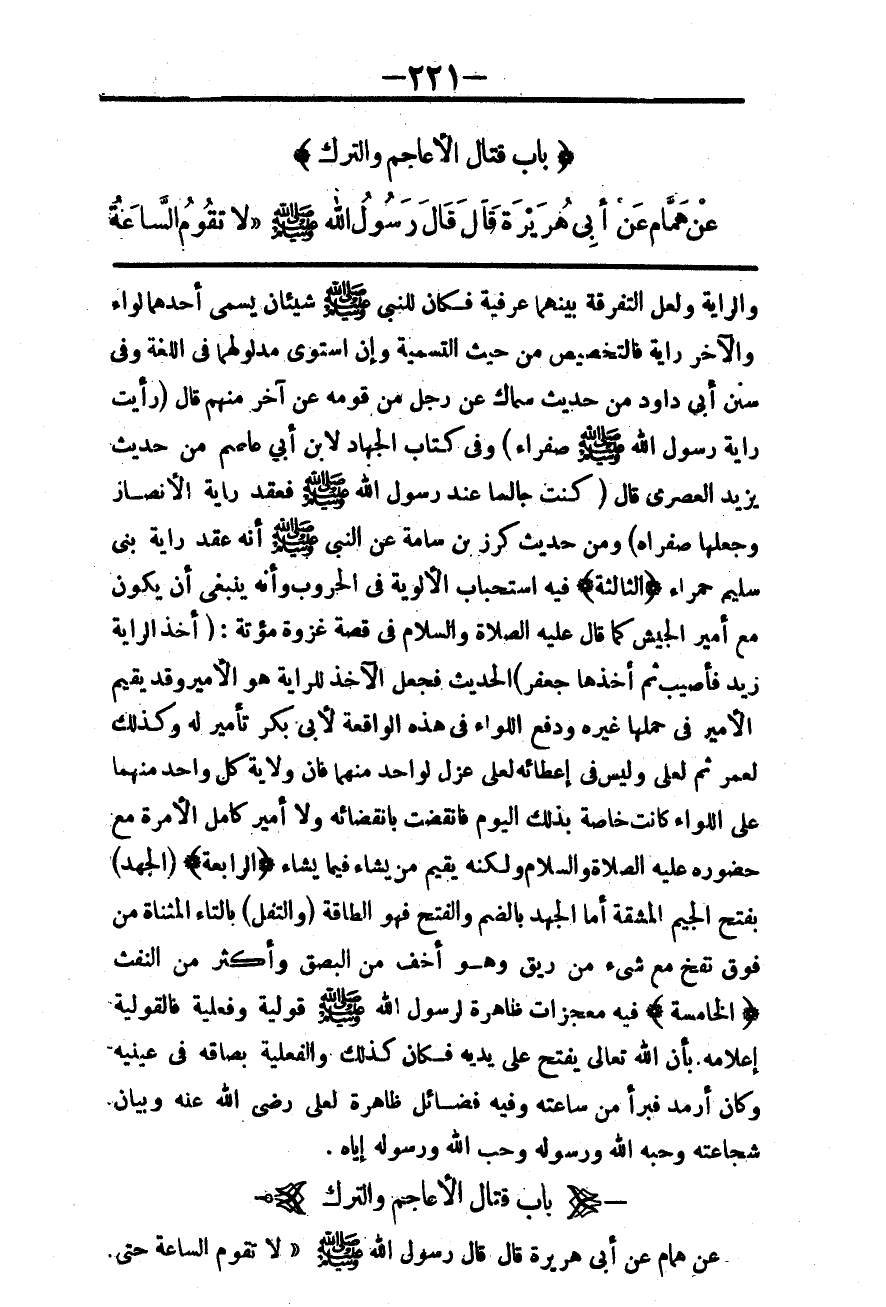 -٢٢١-
﴿ باب قتال الأعاجم والترك ﴾
عَنْ هَمَّامٍ عَنْ أَبِى هُرَيْرَةَ قَالَ قَالَ رَسُولُ اللهِ ﷺ «لا تَقُومُ السَّاعَةُ
والراية ولعل التفرقة بينهما عرفية فكان للنبى ﷺ شيئان يسمى أحدهما لواء
والآخر راية فالتخصيص من حيث التسمية وإن استوى مدلولهما فى اللغة وفى
سنن أبى داود من حديث سماك عن رجل من قومه عن آخر منهم قال (رأيت
راية رسول الله ﷺ صفراء) وفى كتاب الجهاد لابن أبي عاصم من حديث
يزيد العصرى قال ( كنت جالسا عند رسول الله ﷺ فعقد راية الأنصار
وجعلها صفراه) ومن حديث كرز بن سامة عن النبى ﷺ أنه عقد راية بنى
سليم حمراء ﴿الثالثة﴾ فيه استحباب الألوية فى الحروب وأنه ينبغى أن يكون
مع أمير الجيش كما قال عليه الصلاة والسلام فى قصة غزوة مؤتة : ( أخذ الراية
زيد فأصيب ثم أخذها جعفر) الحديث فجعل الآخذ للراية هو الأمير وقد يقيم
الأمير فى حملها غيره ودفع اللواء فى هذه الواقعة لأبى بكر تأمير له وكذلك
لعمر ثم لعلى وليس فى إعطائه لعلى عزل لواحد منهما فان ولاية كل واحد منهما
على اللواء كانت خاصة بذلك اليوم فانقضت بانقضائه ولا أمير كامل الأمرة مع
حضوره عليه الصلاة والسلام ولكنه يقيم من يشاء فيما يشاء ﴿الرابعة﴾ (الجهد)
بفتح الجيم المشقة أما الجهد بالضم والفتح فهو الطاقة (والتفل) بالتاء المثناة من
فوق نفخ مع شىء من ريق وهو أخف من البصق وأكثر من النفث
﴿ الخامسة ﴾ فيه معجزات ظاهرة لرسول الله ﷺ قولية وفعلية فالقولية
إعلامه بأن الله تعالى يفتح على يديه فكان كذلك والفعلية بصاقه فى عينيه
وكان أرمد فبرأ من ساعته وفيه فضائل ظاهرة لعلى رضى الله عنه وبيان
شجاعته وحبه الله ورسوله وحب الله ورسوله إياه .
باب قتال الأعاجم والترك
عن همام عن أبى هريرة قال قال رسول الله ﷺ « لا تقوم الساعة حتى